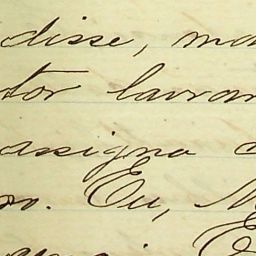 disse, ma
tor lavran
assigna
ro. Eu, M